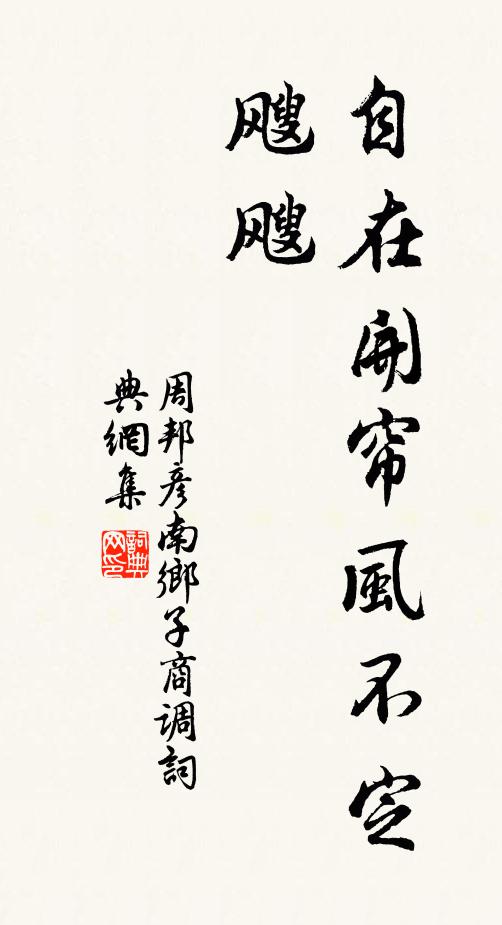 自在開帘風不定
颼颼
周邦彦南鄉子商调詞
典網集
詞典网印